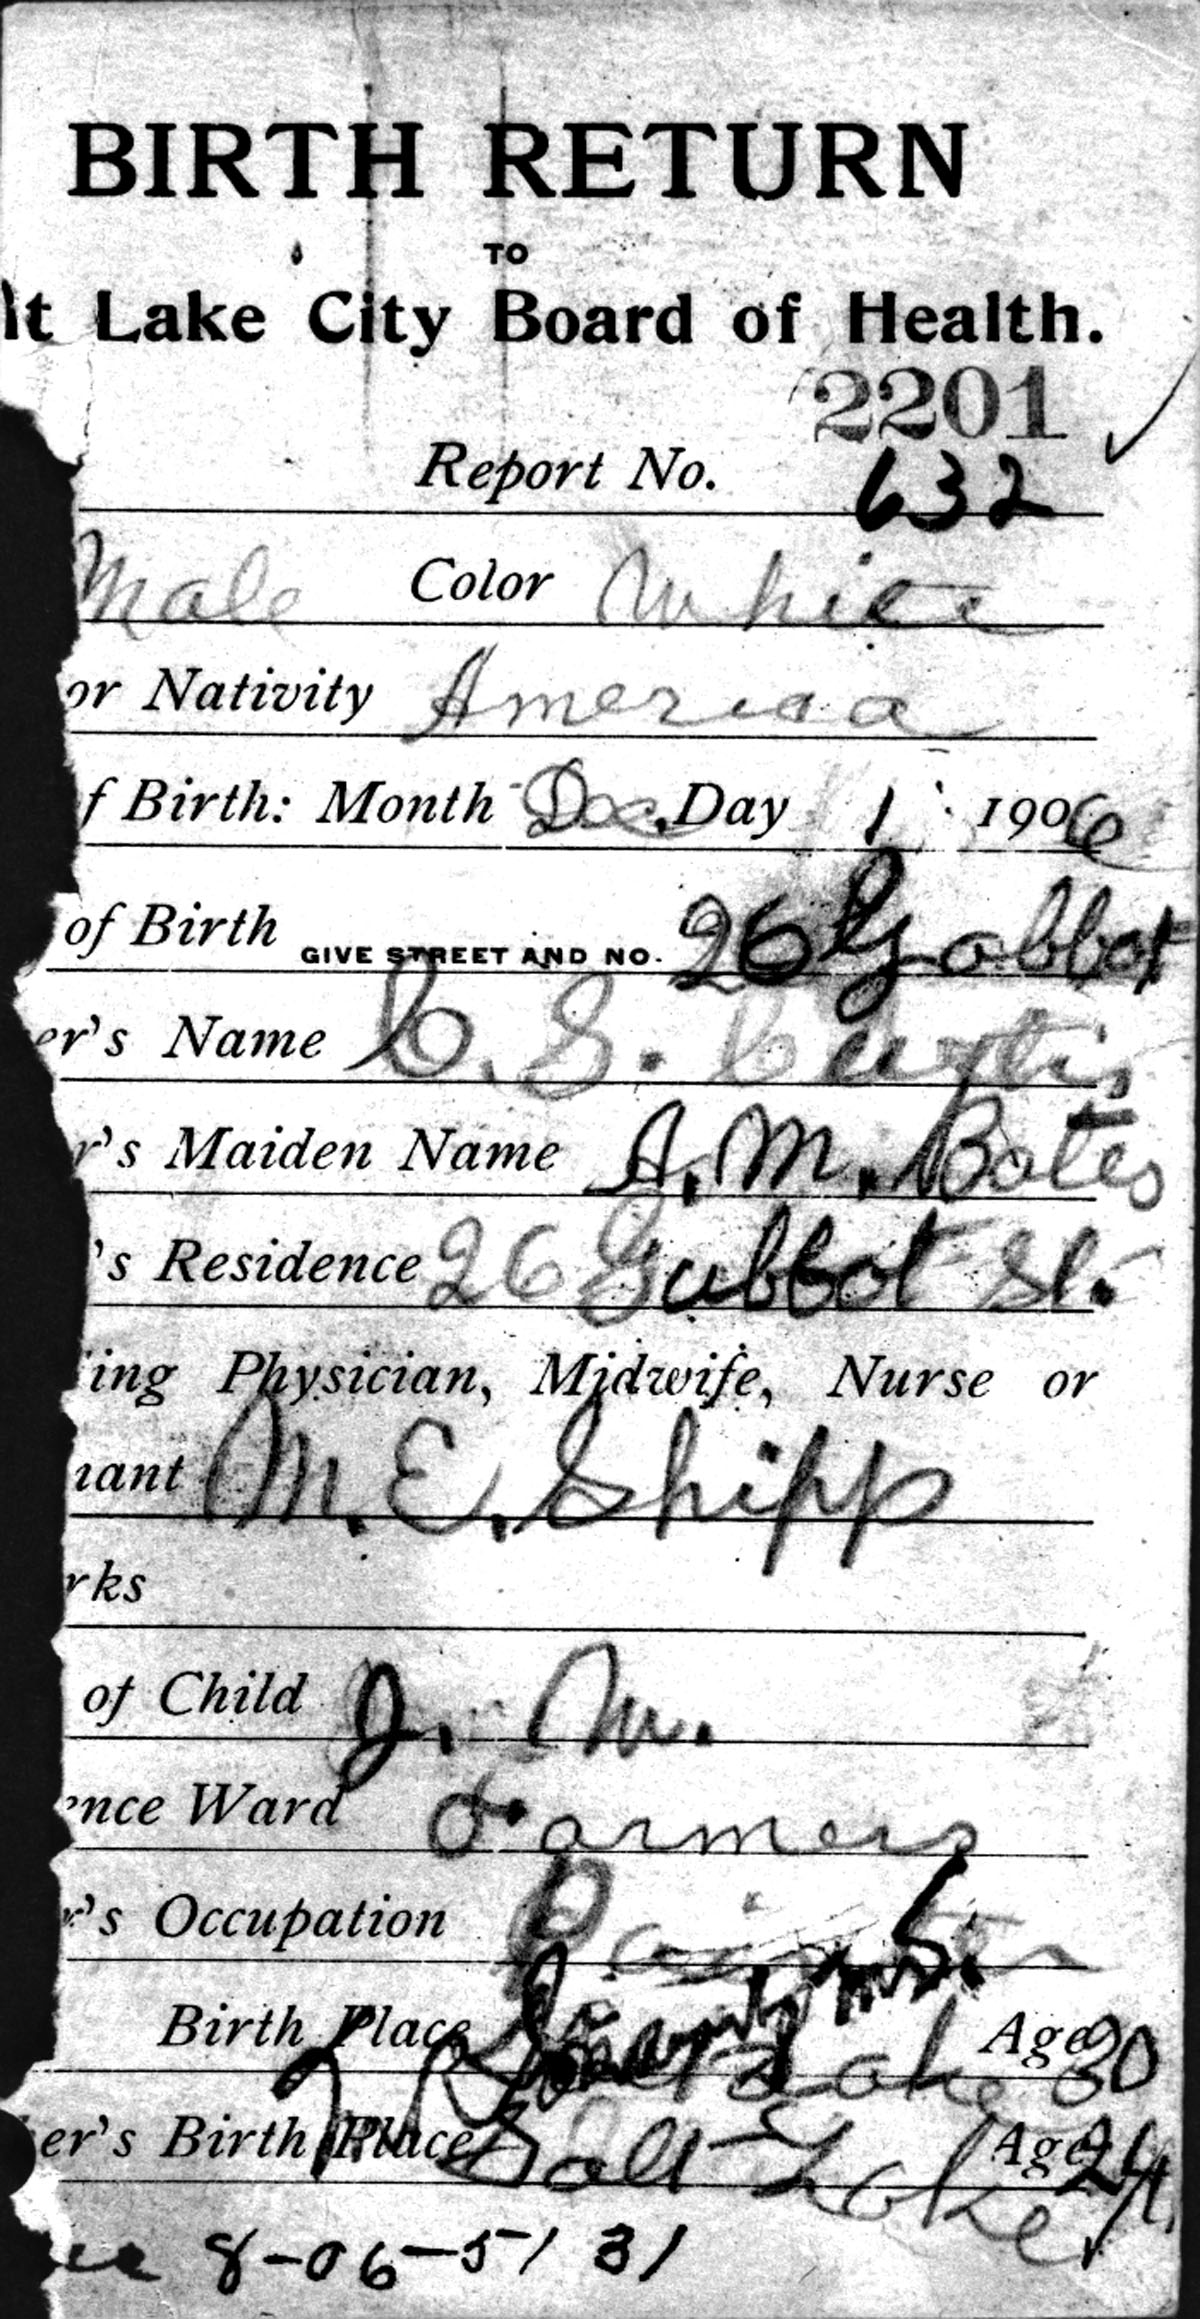 BIRTH RETURN
TO
lt Lake City Board of Health.
2201
Report No. 632
Male Color White
or Nativity America
f Birth: Month Dec. Day 1 1906
of Birth GIVE STREET AND NO. 26 Gabbot
er's Name C. S. Curtis
r's Maiden Name A. M. Bates
's Residence 26 Gabbot St.
ing Physician, Midwife, Nurse or
iant M. E. Shipp
rks
of Child J. M.
ence Ward Farmers
r's Occupation
Birth Place Lake Age 30
er's Birth Place Salt Lake Age 24
8-06-51 31